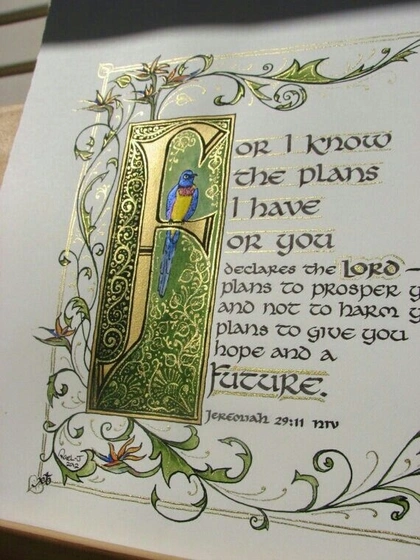 For I know
the plans
I have
for you
declares the LORD –
plans to prosper y
and not to harm y
plans to give you
hope and a
Future.
Jeremiah 29:11 NIV
2012